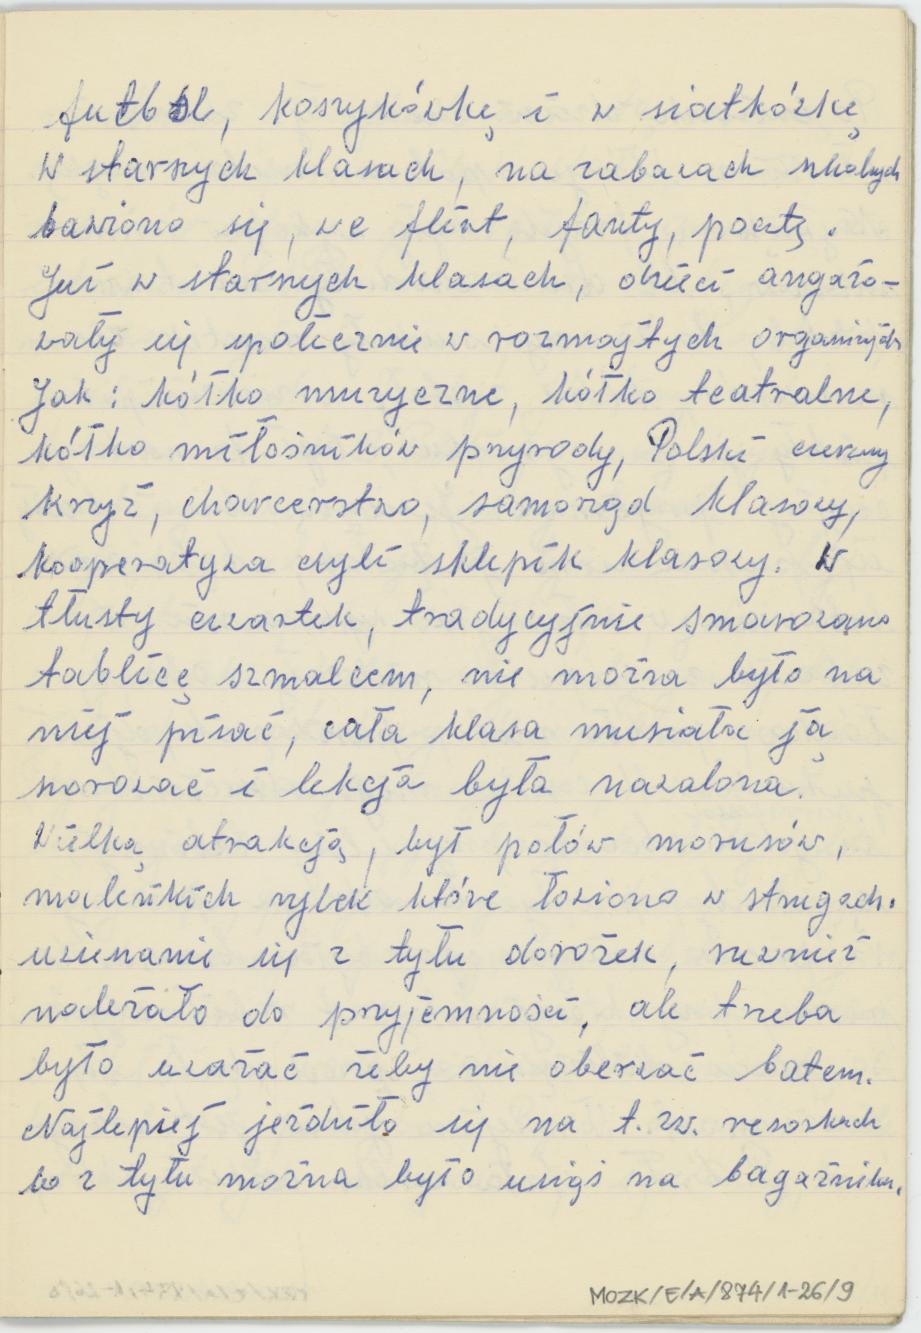 futbol, koszykówkę i w siatkówkę
w starszych klasach, na zabawach szkolnych
bawiono się, we flirt, fanty, pocztę.
Już w starszych klasach, dzieci angażo-
wały się społecznie w rozmajtych organizacjach
Jak: kółko muzyczne, kółko teatralne,
kółko miłośników przyrody, Polski czerwony
krzyż, charcerstwo, samorząd klasowy,
kooperatywa czyli sklepik klasowy. W
tłusty czwartek, tradycyjnie smarowano
tablicę szmalcem, nie można było na
niej pisać, cała klasa musiała ją
szorować i lekcja była nawalona.
Wielką atrakcją, był połów morusów,
maleńkich rybek które łowiono w strugach.
uwieszanie się z tyłu dorożek, ruwnież
należało do przyjemności, ale trzeba
było uważać żeby nie oberwać batem.
Najlepiej jeździło się na t.zw. resorkach
bo z tyłu można było usiąś na bagażniku.
MOZK/E/A/874/1-26/9